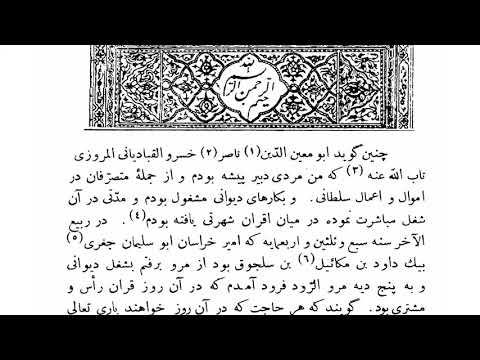 بسم الله الرحمن الرحیم
چنین گوید ابو معین الدّین(۱) ناصر(۲) خسرو القبادیانی المروزی
تاب اللّه عنه(۳) که من مردی دبیر پیشه بودم و از جملهٔ متصرّفان در
اموال و اعمال سلطانی. و بکارهای دیوانی مشغول بودم و مدّتی در آن
شغل مباشرت نموده در میان اقران شهرتی یافته بودم(۴). در ربیع
الآخر سنه سبع و ثلثین و اربعمایه که امیر خراسان ابو سلیمان جغری(۵)
بیك داود بن مکائیل(۶) بن سلجوق بود از مرو برفتم بشغل دیوانی
و به پنج دیه مرو الرّود فرود آمدم که در آن روز قران رأس و
مشتری بود. گویند که هر حاجت که در آن روز خواهند باری تعالی